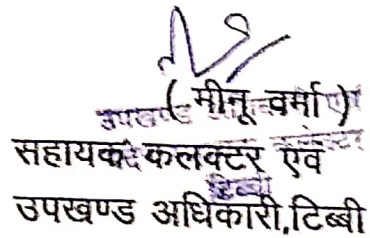 ( मीनू वर्मा )
सहायक कलक्टर एवं
उपखण्ड अधिकारी,टिब्बी